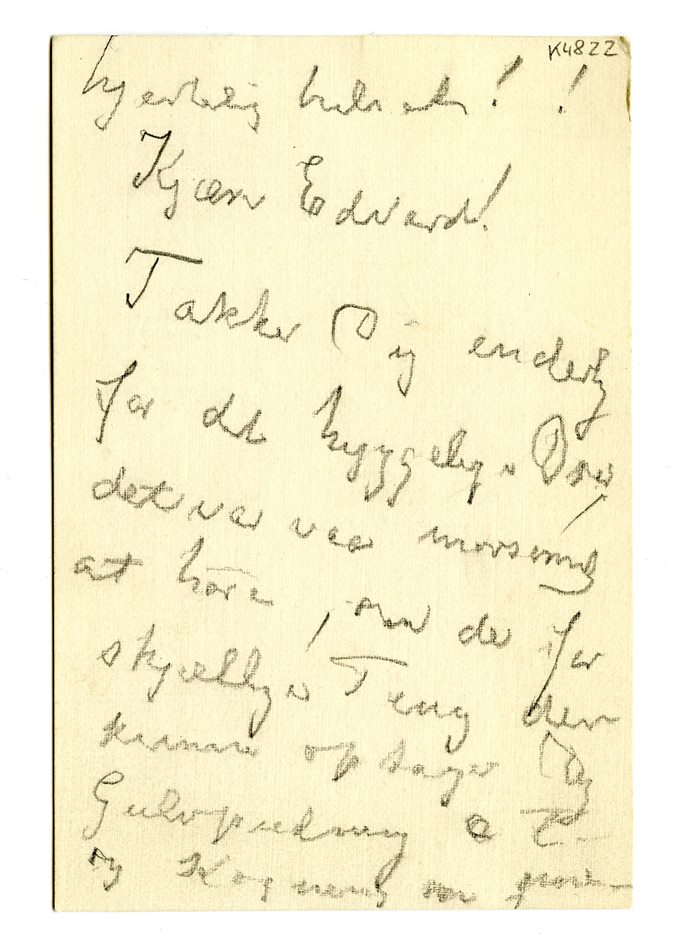 K4822
hjertelig hilsen! !
Kjære Edvard!
Takker Dig enderlig
for det hyggelige Brev
det var morsomt
at höre, om de for
skjellige Ting der
kunne optager Dig
Gulvpudsning
og